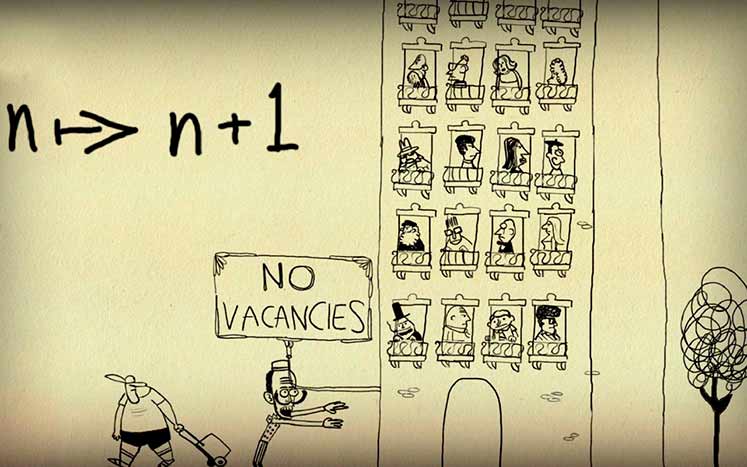 n ↦ n + 1
NO
VACANCIES